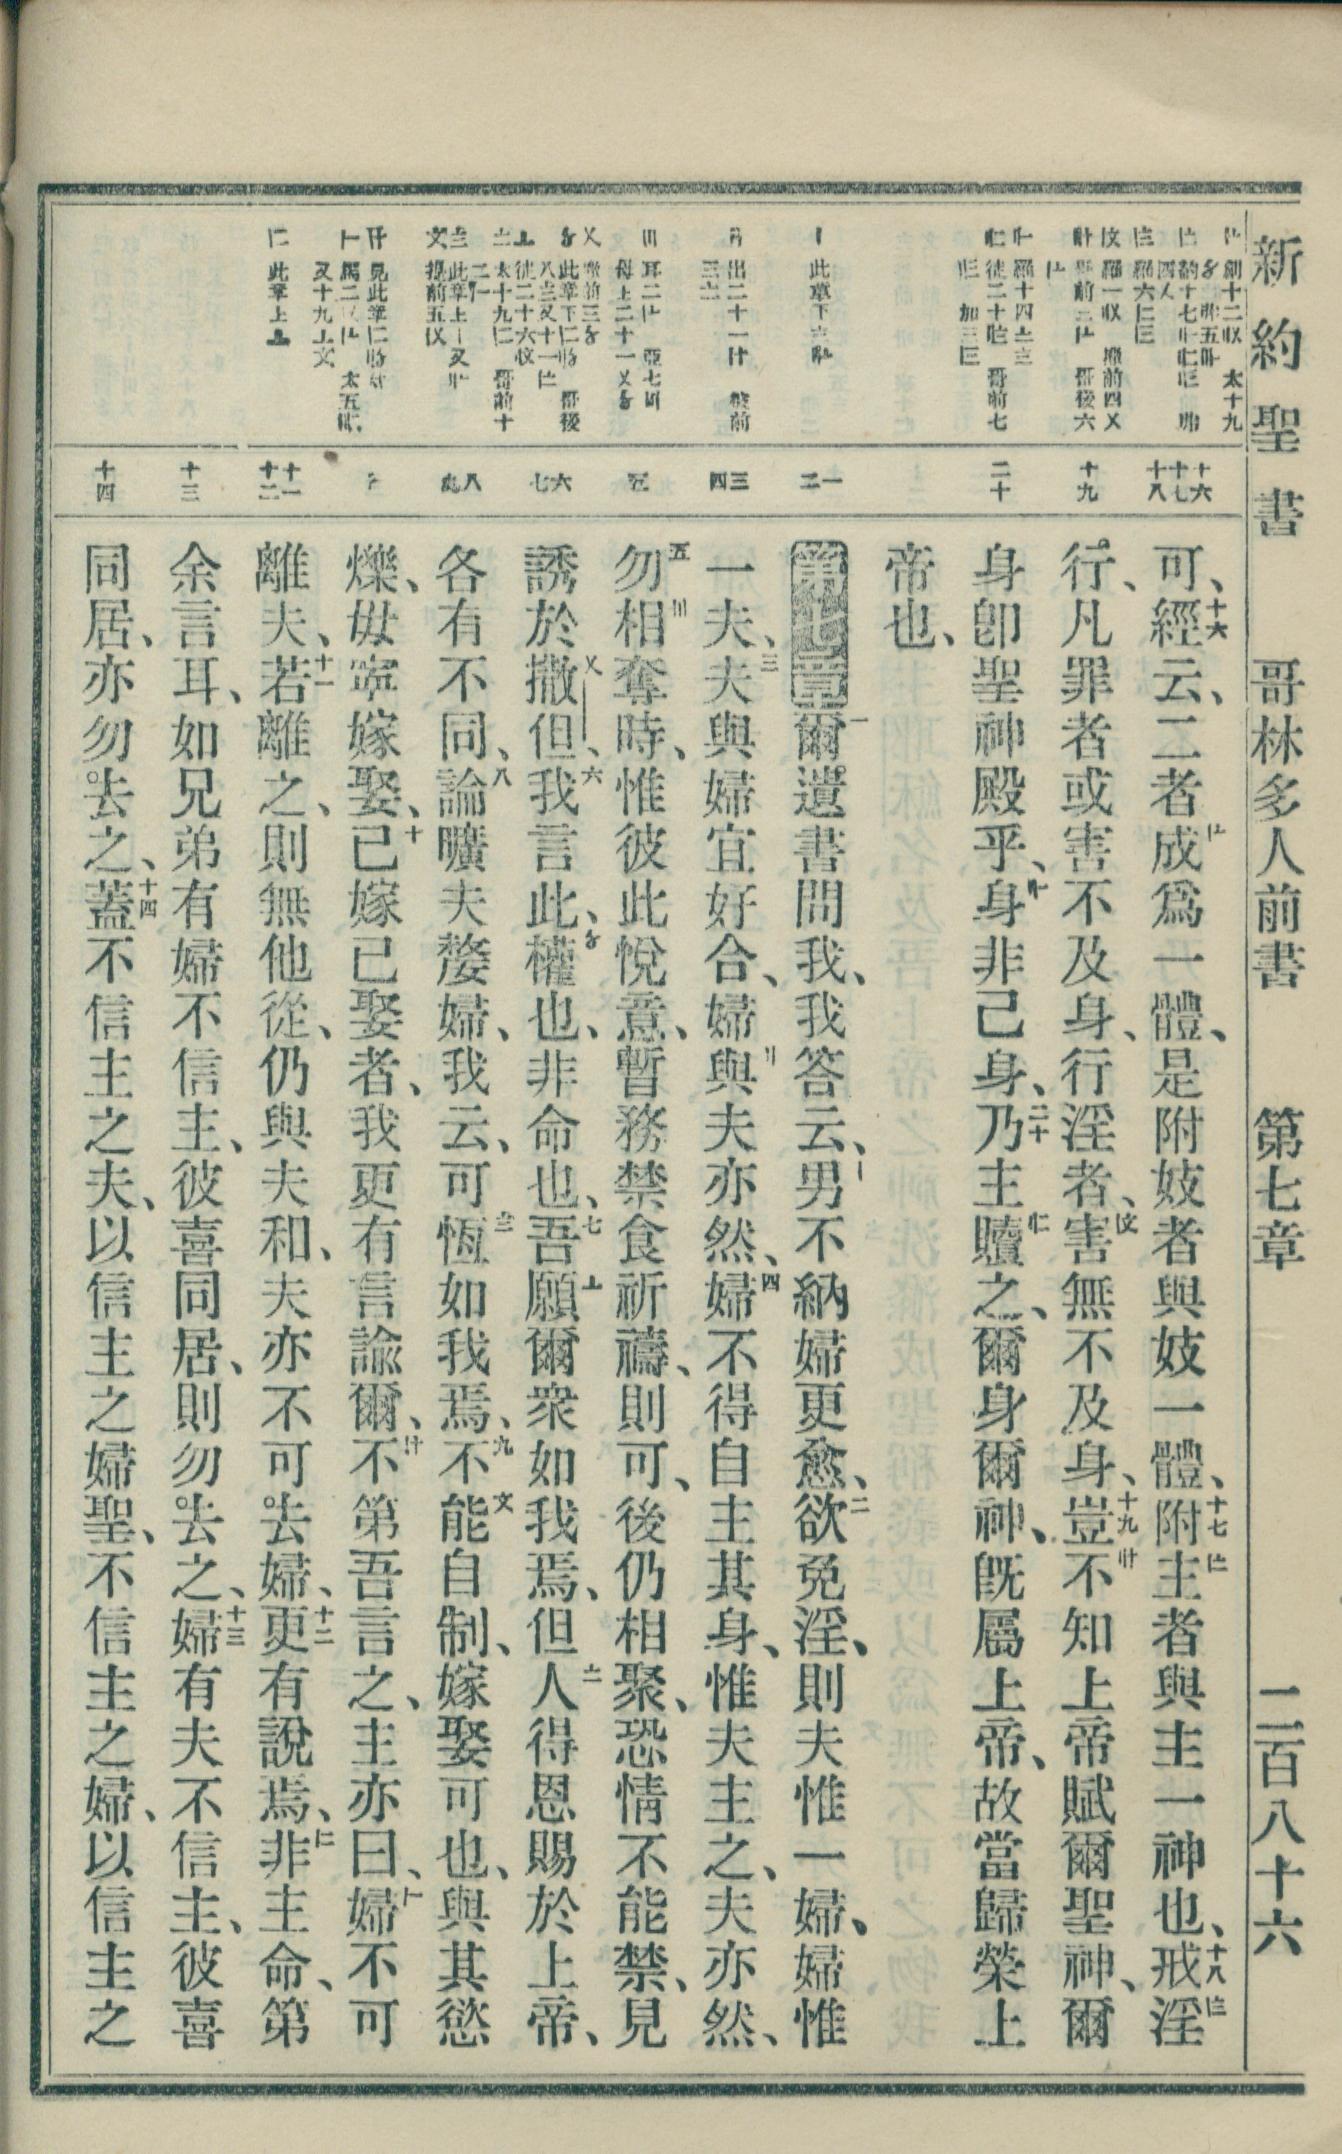 新約聖書 哥林多人前書 第七章 二百八十六
十六
十七
十八
十九
二十
一
二
三
四
五
六
七
八
九
十
十一
十二
十三
十四
可、十六經云、二者成爲一體、是附妓者與妓一體、十七附主者與主一神也、十八戒淫
行、凡罪者或害不及身、行淫者、害無不及身、十九豈不知上帝賦爾聖神、爾
身卽聖神殿乎、身非己身、二十乃主贖之、爾身爾神、旣屬上帝、故當歸榮上
帝也、
第七章 一爾遺書問我、我答云、男不納婦更愈、二欲免淫、則夫惟一婦、婦惟
一夫、三夫與婦宜好合、婦與夫亦然、四婦不得自主其身、惟夫主之、夫亦然、
五勿相奪時、惟彼此悅意、暫務禁食祈禱、則可、後仍相聚、恐情不能禁、見
誘於撒但、六我言此、權也、非命也、七吾願爾衆如我焉、但人得恩賜於上帝、
各有不同、八論曠夫嫠婦、我云、可恆如我焉、九不能自制、嫁娶可也、與其慾
爍、毋寧嫁娶、十已嫁已娶者、我更有言諭爾、不第吾言之、主亦曰、婦不可
離夫、十一若離之、則無他從、仍與夫和、夫亦不可去婦、十二更有說焉、非主命、第
余言耳、如兄弟有婦不信主、彼喜同居、則勿去之、十三婦有夫不信主、彼喜
同居、亦勿去之、十四蓋不信主之夫、以信主之婦聖、不信主之婦、以信主之